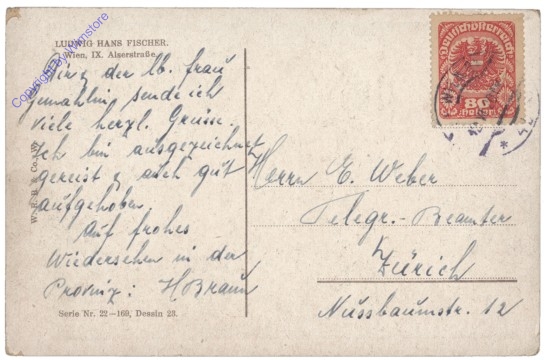 LUDWIG HANS FISCHER.
Wien, IX. Alserstraße
Dir & der lb. Frau
Gemahlin sende ich
viele herzl. Grüsse.
Ich bin ausgezeichnet
gereist & auch gut
aufgehoben.
Auf frohes
Wiedersehen in der
Provinz: H Braun
Serie Nr. 22—160, Dessin 23.
Deutschösterreich
80
Heller
WIEN
Herrn E. Weber
Telegr.-Beamter
Zürich
Nussbaumstr. 12
Copyright by Hamstore